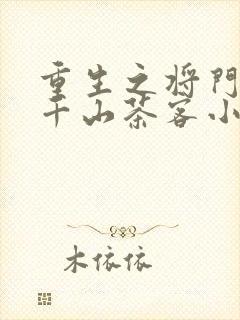 重生之将门
千山茶客小
木依依